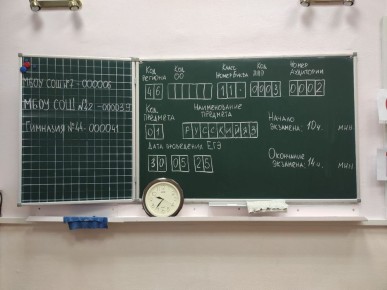 МБОУ СОШ №7 - 000006
МБОУ СОШ №2 - 000039
Гимназия №44 - 000041
Код региона Код ОО Класс Номер буква Код ППЭ Номер аудитории
46 11. 0003 0002
Код предмета Наименование предмета
01 РУССКИЙ ЯЗ
Начало экзамена: 10 ч. мин
Дата проведения ЕГЭ
30 05 25
Окончание экзамена: 14 ч. мин